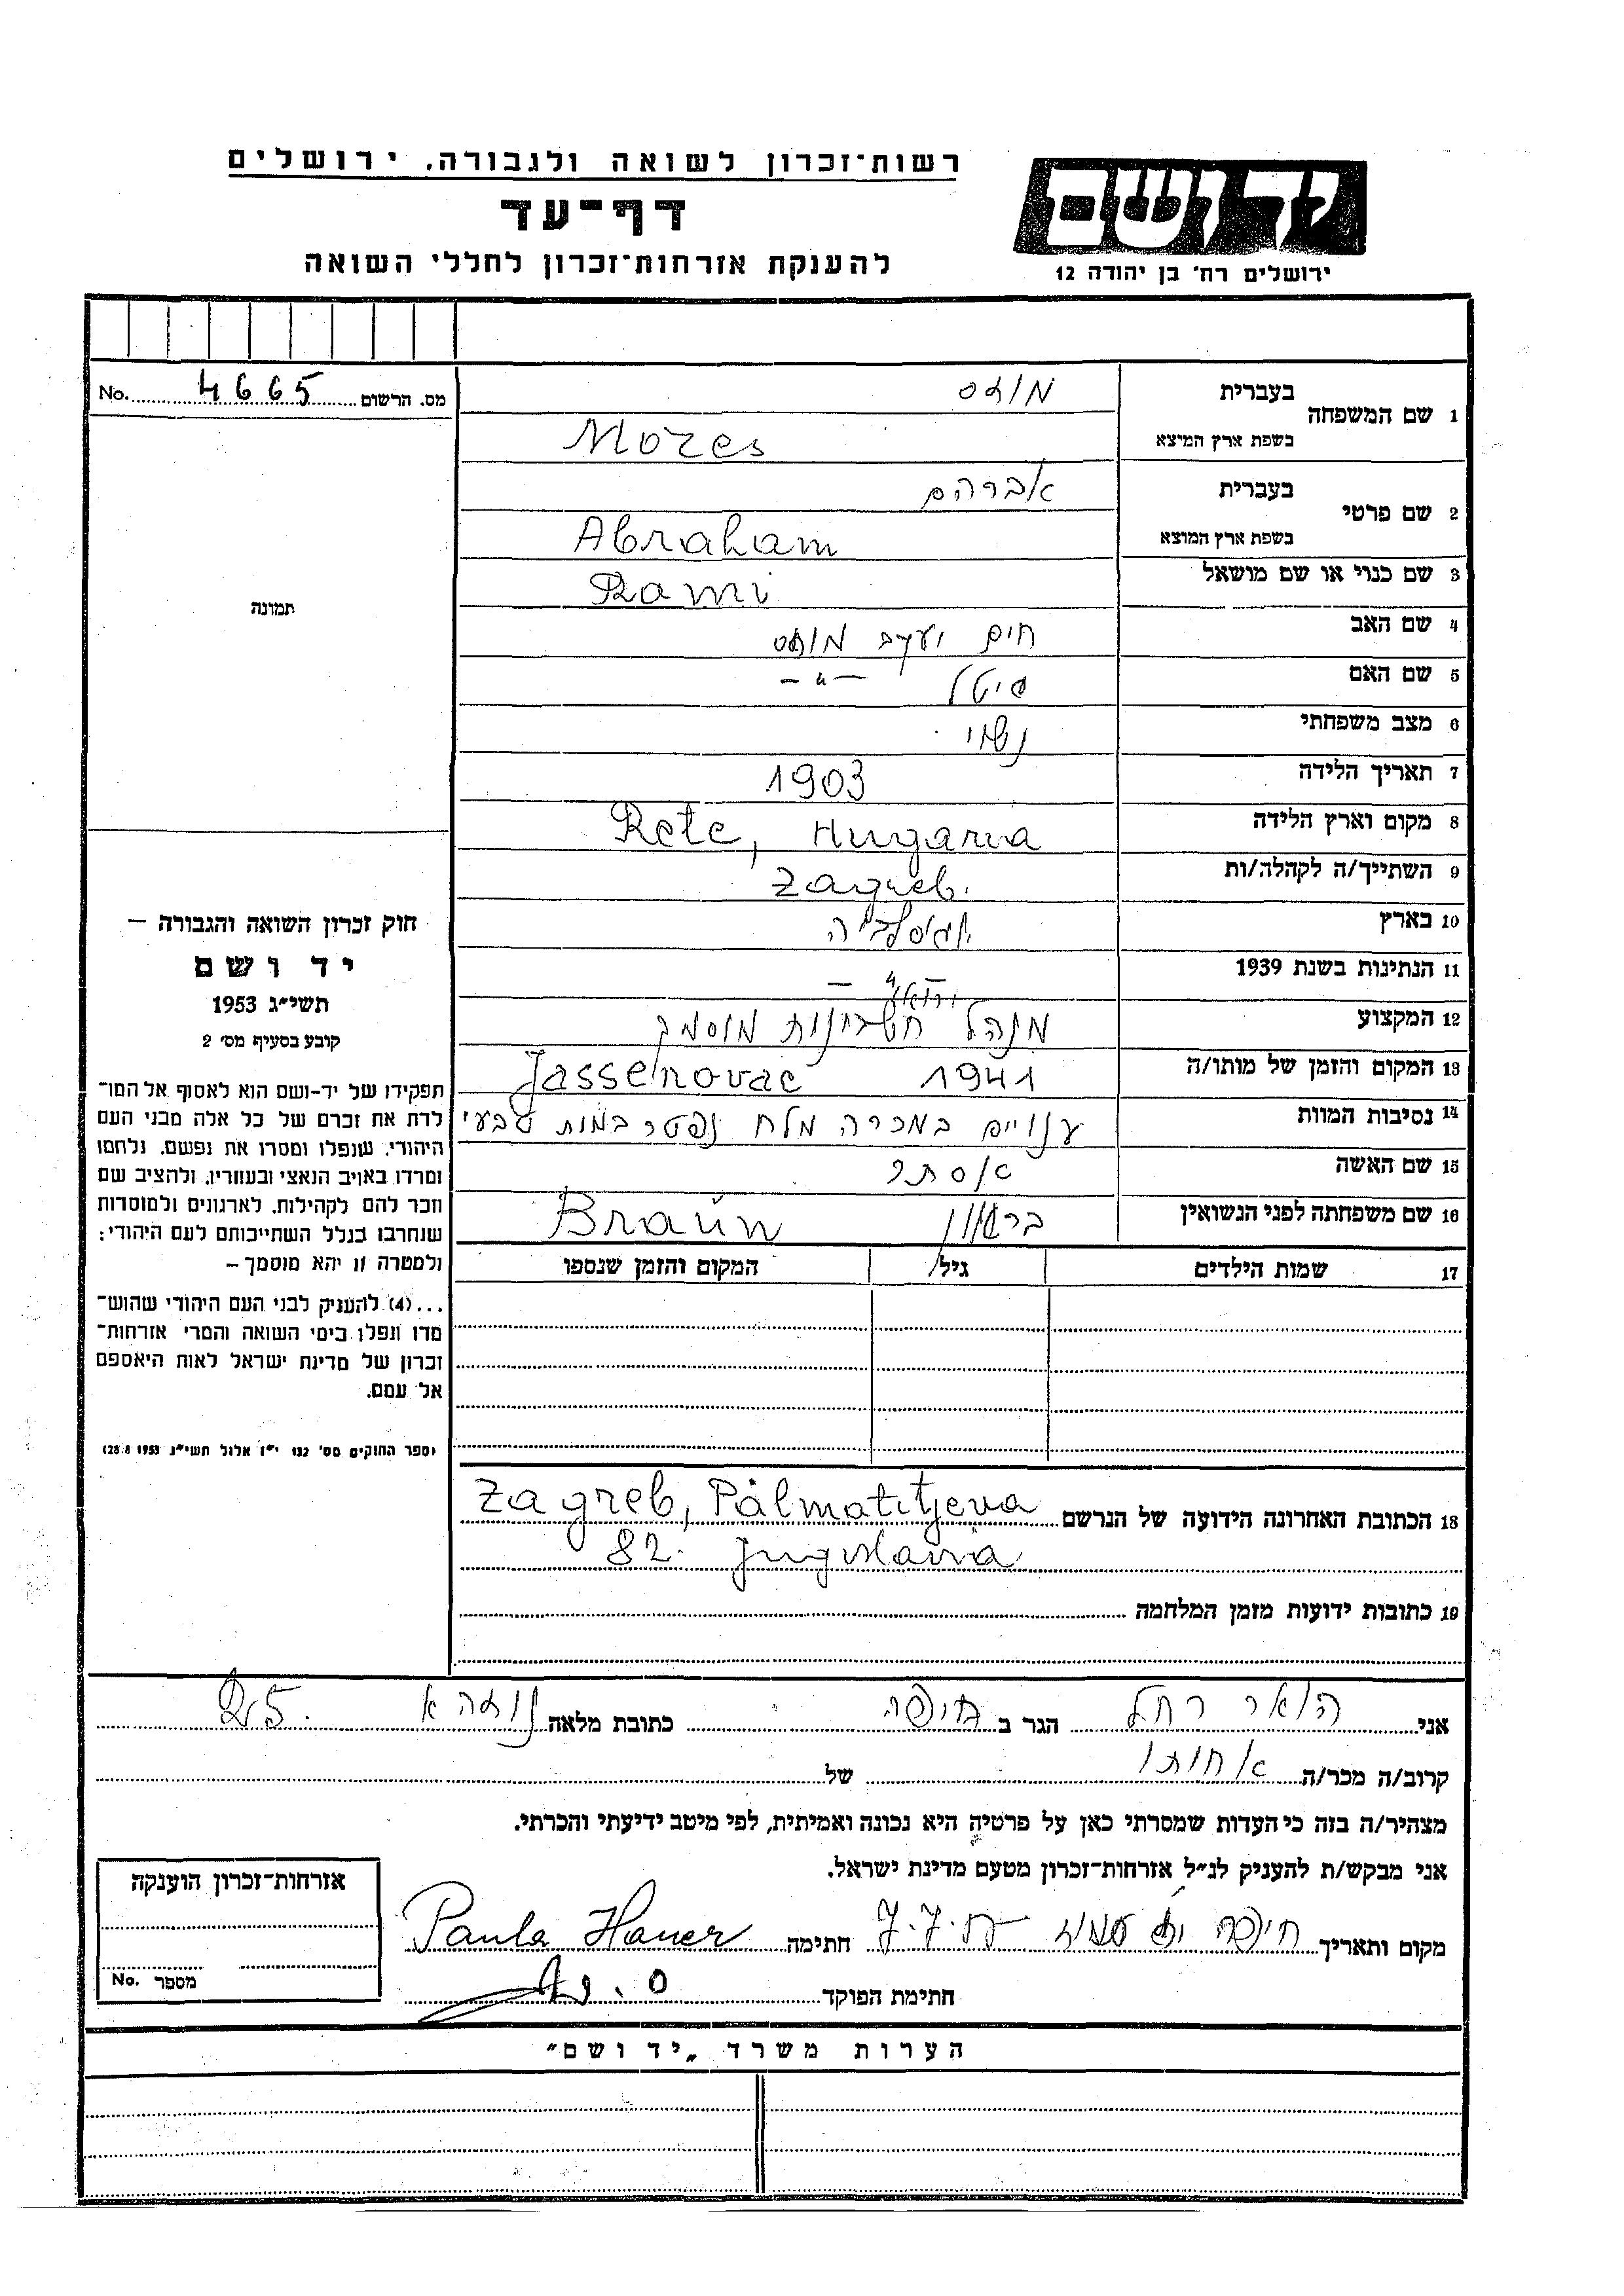 רשות־זכרון לשואה ולגבורה, ירושלים
דף־עד
להענקת אזרחות־זכרון לחללי השואה
יד ושם
ירושלים רח' בן יהודה 12
מס. הרשום 4665 No.
תמונה
חוק זכרון השואה והגבורה —
יד ושם
תשי״ג 1953
קובע בסעיף מס' 2
תפקידו של יד-ושם הוא לאסוף אל המו־
לדת את זכרם של כל אלה מבני העם
היהודי, שנפלו ומסרו את נפשם, נלחמו
ומרדו באויב הנאצי ובעוזריו, ולהציב שם
וזכר להם לקהילות, לארגונים ולמוסדות
שנחרבו בגלל השתייכותם לעם היהודי;
ולמטרה זו יהא מוסמך —
...(4) להעניק לבני העם היהודי שהוש־
מדו ונפלו בימי השואה והמרי אזרחות־
זכרון של מדינת ישראל לאות היאספם
אל עמם.
(ספר החוקים מס' 132 י״ז אלול תשי״ג 28.8.1953)
1 שם המשפחה
בעברית מוזס
בשפת ארץ המיצא Mozes
2 שם פרטי
בעברית אברהם
בשפת ארץ המוצא Abraham
3 שם כנוי או שם מושאל Rami
4 שם האב חיים יעקב מוזס
5 שם האם — " —
6 מצב משפחתי נשוי
7 תאריך הלידה 1903
8 מקום וארץ הלידה Rete, Hugaria
9 השתייך/ה לקהלה/ות Zagreb.
10 בארץ יוגוסלביה
11 הנתינות בשנת 1939 — " —
12 המקצוע מנהל חשבונות מוסמך
13 המקום והזמן של מותו/ה Jassenovac 1941
14 נסיבות המוות ענויים במכרה מלח נפטר במות טבעי
15 שם האשה אסתר
16 שם משפחתה לפני הנשואין בראון Braun
17 שמות הילדים גיל המקום והזמן שנספו
18 הכתובת האחרונה הידועה של הנרשם Zagreb, Pálmatitjeva
82. Jugoslavia
19 כתובות ידועות מזמן המלחמה
אני האור רחל הגר ב חיפה כתובת מלאה 25
קרוב/ה מכר/ה אחותו של
מצהיר/ה בזה כי העדות שמסרתי כאן על פרטיה היא נכונה ואמיתית, לפי מיטב ידיעתי והכרתי.
אני מבקש/ת להעניק לנ״ל אזרחות־זכרון מטעם מדינת ישראל.
מקום ותאריך חיפה חתימה Paula Hauer
חתימת הפוקד
אזרחות־זכרון הוענקה
מספר No.
הערות משרד „יד ושם״